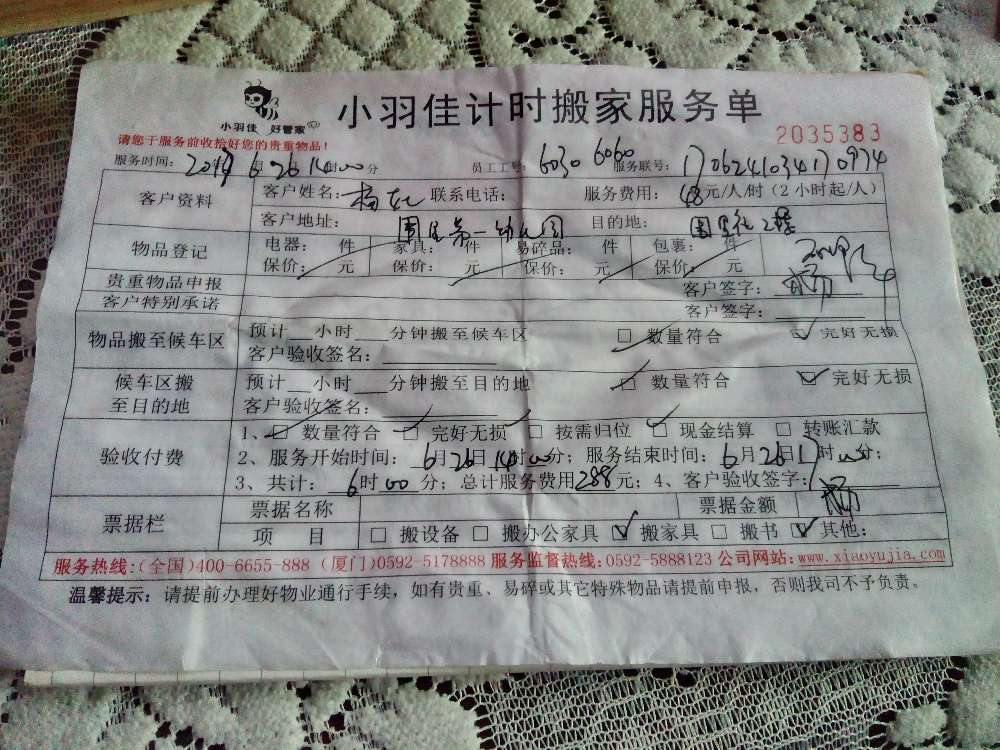 小羽佳 好管家
小羽佳计时搬家服务单
请您于服务前收拾好您的贵重物品!
2035383
服务时间: 6月26日14时00分 员工工号: 6030 6060 服务联号:
客户资料 客户姓名: 杨 联系电话: 服务费用: 48元/人/时(2小时起/人)
客户地址: 第一幼儿园 目的地:
物品登记 电器: 件 家具: 件 易碎品: 件 包裹: 件
保价: 元 保价: 元 保价: 元 保价: 元
贵重物品申报 客户签字: 杨
客户特别承诺 客户签字:
物品搬至候车区 预计 小时 分钟搬至候车区 □ 数量符合 ☑ 完好无损
客户验收签名:
候车区搬至目的地 预计 小时 分钟搬至目的地 ☑ 数量符合 ☑ 完好无损
客户验收签名:
验收付费 1、☑ 数量符合 ☑ 完好无损 □ 按需归位 ☑ 现金结算 □ 转账汇款
2、服务开始时间: 6月26日14时00分; 服务结束时间: 6月26日17时00分;
3、共计: 6时00分; 总计服务费用288元; 4、客户验收签字: 杨
票据栏 票据名称 票据金额
项 目 □ 搬设备 □ 搬办公家具 ☑ 搬家具 □ 搬书 ☑ 其他:
服务热线:(全国)400-6655-888 (厦门)0592-5178888 服务监督热线:0592-5888123 公司网站:www.xiaoyujia.com
温馨提示: 请提前办理好物业通行手续, 如有贵重、易碎或其它特殊物品请提前申报, 否则我司不予负责。